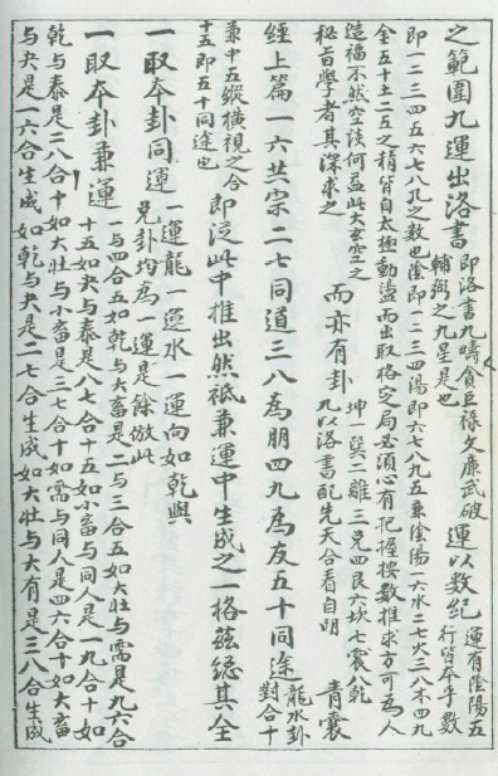 之範圍九運出洛書
即洛書九疇貪巨祿文廉武破
輔弼之九星是也
運以數紀
運有陰陽五
行皆本乎數
即一二三四五六七八九之數也陰即一二三四陽即六七八九五兼陰陽一六水二七火三八木四九
金五十土二五之精皆自太極動盪而出取格定局必須心有把握按數推求方可為人
造福不然空談何益此大玄空之
秘旨學者其深求之
而亦有卦
坤一巽二離三兌四艮六坎七震八乾
九以洛書配先天合看自明
青囊
經上篇一六共宗二七同道三八為朋四九為友五十同途
龍水卦
對合十
兼中五縱橫視之合
十五即五十同途也
即從此中推出然祗兼運中生成之一格茲總其全
一取本卦同運
一運龍一運水一運向如乾與
兌卦均為一運是餘倣此
一取本卦兼運
一与四合五如乾与大畜是二与三合五如大壮与需是九六合
十五如夬与泰是八七合十五如小畜与同人是一九合十如
乾与泰是二八合十如大壮与小畜是三七合十如需与同人是四六合十如大畜
与夬是一六合生成如乾与夬是二七合生成如大壮与大有是三八合生成